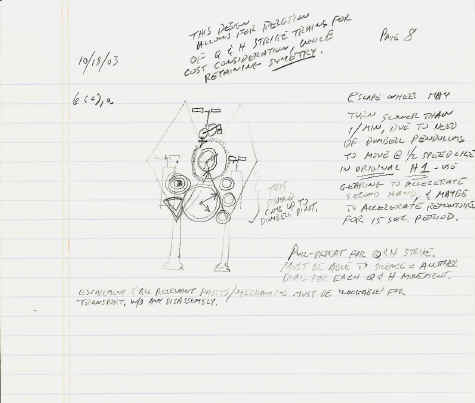 THIS DESIGN
ALLOWS FOR DELETION
OF Q & H STRIKE TRAINS FOR
COST CONSIDERATION, WHILE
RETAINING SYMETRY.
PAGE 8
10/18/03
ESCAPE WHEEL MAY
TURN SLOWER THAN
1/MIN, DUE TO NEED
OF DUMBELL PENDULUMS
TO MOVE @ 1/2 SPEED LIKE
IN ORIGINAL H1 - USE
GEARING TO ACCELERATE
SECOND HAND, & MAYBE
TO ACCELERATE REMONTOIRE
FOR 15 SEC. PERIOD.
THIS
COME UP TO
DUMBELL
PULL-REPEAT FOR Q & H STRIKE.
MUST BE ABLE TO SILENCE = ANOTHER
DIAL FOR EACH Q & H MOVEMENT.
ESCAPEMENT & ALL RELEVANT PARTS/MECHANISMS MUST BE 'LOCKABLE' FOR
TRANSPORT, W/O ANY DISASSEMBLY.